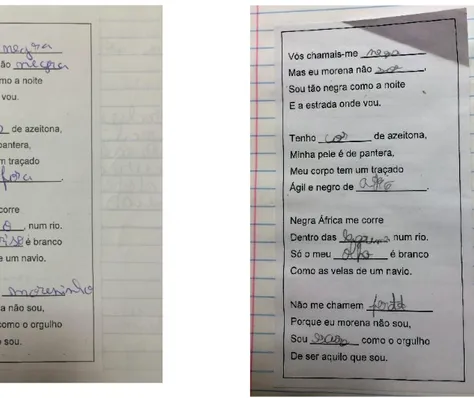 negra
ão negra
omo a noite
vou.
de azeitona,
pantera,
m traçado
fora.
corre
, num rio.
é branco
e um navio.
moreninho
a não sou,
como o orgulho
e sou.
Vós chamais-me nega
Mas eu morena não sou,
Sou tão negra como a noite
E a estrada onde vou.
Tenho cor de azeitona,
Minha pele é de pantera,
Meu corpo tem um traçado
Ágil e negro de
Negra África me corre
Dentro das num rio.
Só o meu olho é branco
Como as velas de um navio.
Não me chamem
Porque eu morena não sou,
Sou como o orgulho
De ser aquilo que sou.